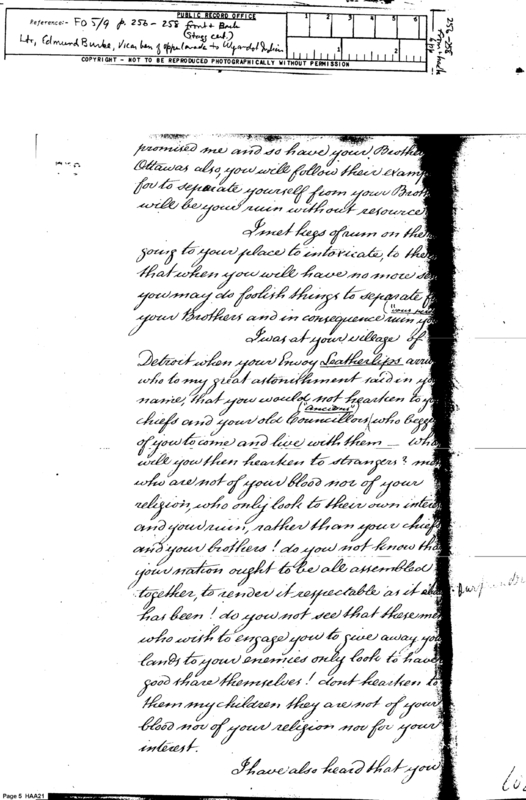 PUBLIC RECORD OFFICE
Reference:- FO 5/9 p. 256-258 front & back
Ltr, Edmund Burke, Vicar Gen of Upper Canada to Wyandot Indians
COPYRIGHT - NOT TO BE REPRODUCED PHOTOGRAPHICALLY WITHOUT PERMISSION
1 2 3 4 5 6
1 2
256-258
promised me and so have your Brothe
Ottawas also, you will follow their examp
for to separate yourself from your Brot
will be your ruin without resource
I met kegs of rum on the
going to your place to intoxicate, to the
that when you will have no more se
you may do foolish things to separate f
your Brothers and in consequence ruin yo
I was at your village of
Detroit when your Envoy Leatherlips arriv
who to my great astonishment said in yo
name, that you would not hearken to yo
("anciens")
chiefs and your old Councillors, who begg
of you to come and live with them — who
will you then hearken to strangers? men
who are not of your blood nor of your
religion, who only look to their own intere
and your ruin, rather than your chiefs
and your brothers! do you not know tha
your nation ought to be all assembled
together, to render it respectable as it
has been! do you not see that these me
who wish to engage you to give away you
lands to your enemies only look to have
good share themselves! dont hearken to
them my children they are not of your
blood nor of your religion nor for your
interest.
I have also heard that you
Page 5 HAA21